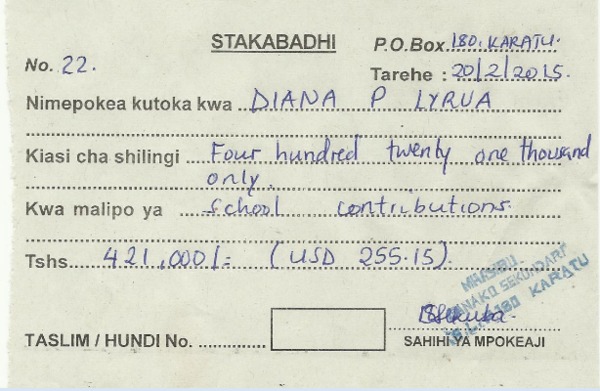 STAKABADHI
P.O.Box 180, KARATU.
No. 22.
Tarehe : 20/2/2015.
Nimepokea kutoka kwa DIANA P LYRUA
Kiasi cha shilingi Four hundred twenty one thousand
only.
Kwa malipo ya school contributions.
Tshs 421,000/= (USD 255.15).
SEKONDARI
180 KARATU
TASLIM / HUNDI No.
SAHIHI YA MPOKEAJI